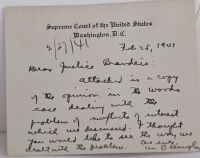 Supreme Court of the United States
Washington, D.C.
2/27/41
Feb 25, 1941
Dear Justice Brandeis:
Attached is a copy
of the opinion in the Woods
case dealing with the
problem of conflicts of interest
which we discussed. I thought
you would like to see the way we
dealt with the problem.
Wm O Douglas